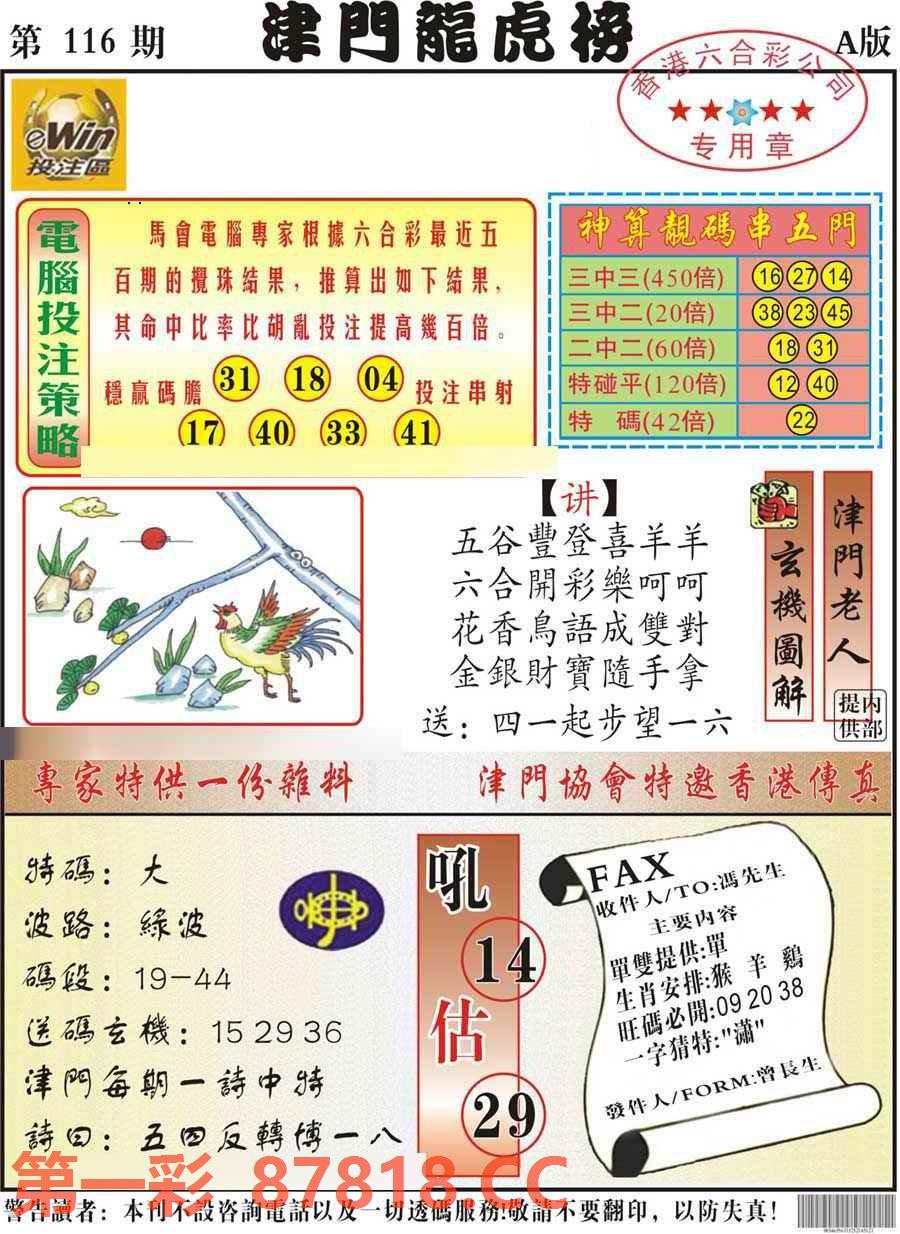 第 116 期
津門龍虎榜
A版
香港六合彩公司
专用章
eWin
投注區
電腦投注策略
馬會電腦專家根據六合彩最近五
百期的攪珠結果，推算出如下結果，
其命中比率比胡亂投注提高幾百倍。
穩贏碼膽 31 18 04 投注串射
17 40 33 41
神算靚碼串五門
三中三(450倍) 16 27 14
三中二(20倍) 38 23 45
二中二(60倍) 18 31
特碰平(120倍) 12 40
特 碼(42倍) 22
【讲】
五谷豐登喜羊羊
六合開彩樂呵呵
花香鳥語成雙對
金銀財寶隨手拿
送：四一起步望一六
玄機圖解
津門老人
内部提供
專家特供一份雜料
津門協會特邀香港傳真
特碼：大
波路：綠波
碼段：19-44
送碼玄機：15 29 36
津門每期一詩中特
詩曰：五四反轉博一八
吼
14
估
29
FAX
收件人/TO:馮先生
主要内容
單雙提供:單
生肖安排:猴 羊 鷄
旺碼必開:09 20 38
一字猜特:"瀟"
發件人/FORM:曾長生
第一彩 87818.CC
警告讀者：本刊不設咨詢電話以及一切透碼服務!敬請不要翻印，以防失真！